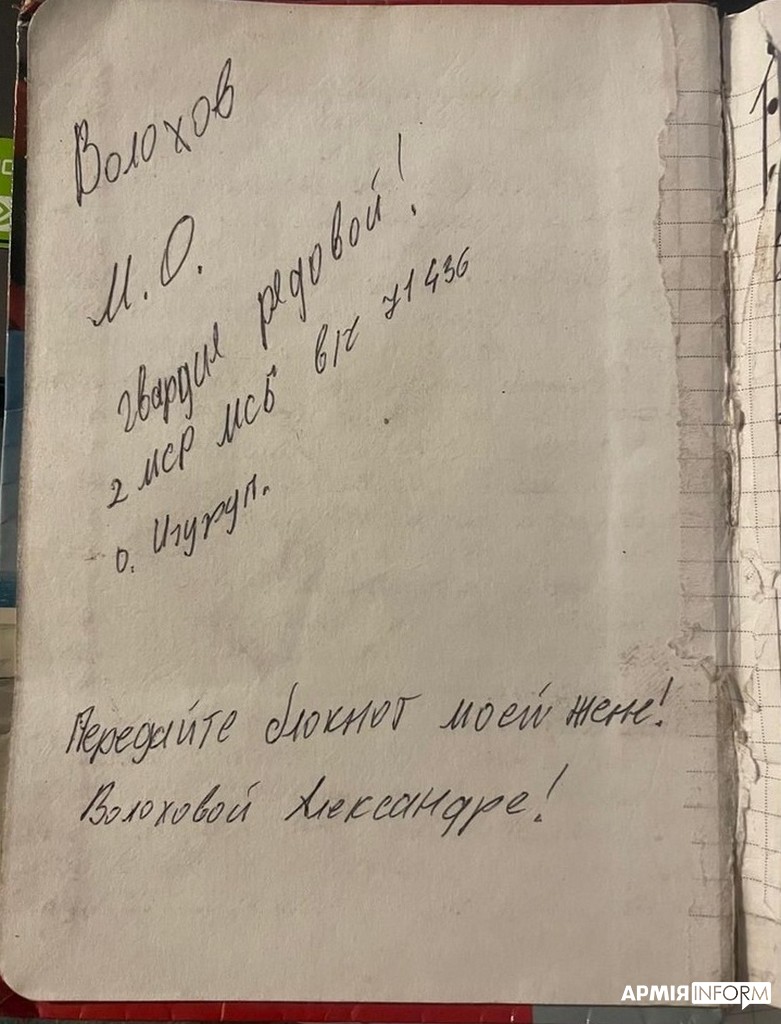 Волохов
М. О.
гвардия редовой!
2 мср мсб в/ч 71436
о. Итуруп.
Передайте блокнот моей жене!
Волоховой Александре!
АРМІЯINFORM